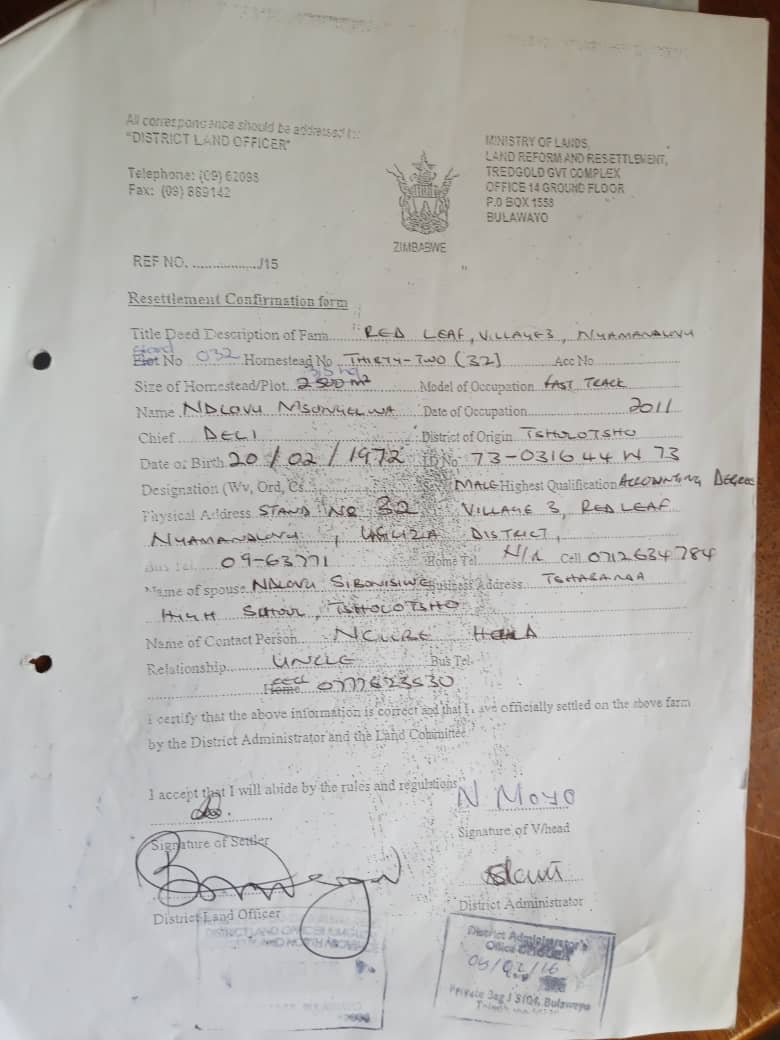 All correspondence should be addressed to:
"DISTRICT LAND OFFICER"
Telephone: (09) 62098
Fax: (09) 889142
MINISTRY OF LANDS,
LAND REFORM AND RESETTLEMENT,
TREDGOLD GVT COMPLEX
OFFICE 14 GROUND FLOOR
P.O BOX 1558
BULAWAYO
ZIMBABWE
REF NO. ................./15
Resettlement Confirmation form
Title Deed Description of Farm RED LEAF, VILLAGE 3, NYAMANDLOVU
Stand
Plot No 032 Homestead No THIRTY-TWO (32) Acc No
Size of Homestead/Plot 2500m² Model of Occupation FAST TRACK
Name NDLOVU Date of Occupation 2011
Chief DELI District of Origin TSHOLOTSHO
Date of Birth 20/02/1972 ID No 73-031644 W 73
Designation (Wv, Ord, Cs MALE Highest Qualification ACCOUNTING DEGREE
Physical Address STAND NO 32 VILLAGE 3, RED LEAF
NYAMANDLOVU, UMGUZA DISTRICT,
Bus Tel. 09-63771 Home Tel N/A Cell 0712634784
Name of spouse NDLOVU SIBONISIWE Business Address
HIGH SCHOOL, TSHOLOTSHO
Name of Contact Person NCUBE
Relationship UNCLE Bus Tel
Home cell 0777623530
I certify that the above information is correct and that I have officially settled on the above farm
by the District Administrator and the Land Committee
I accept that I will abide by the rules and regulations
N MOYO
Signature of Settler
Signature of V/head
District Land Officer
District Administrator
DISTRICT LAND OFFICER
District Administrator's
Office
05/02/16
Private Bag J 5104, Bulawayo